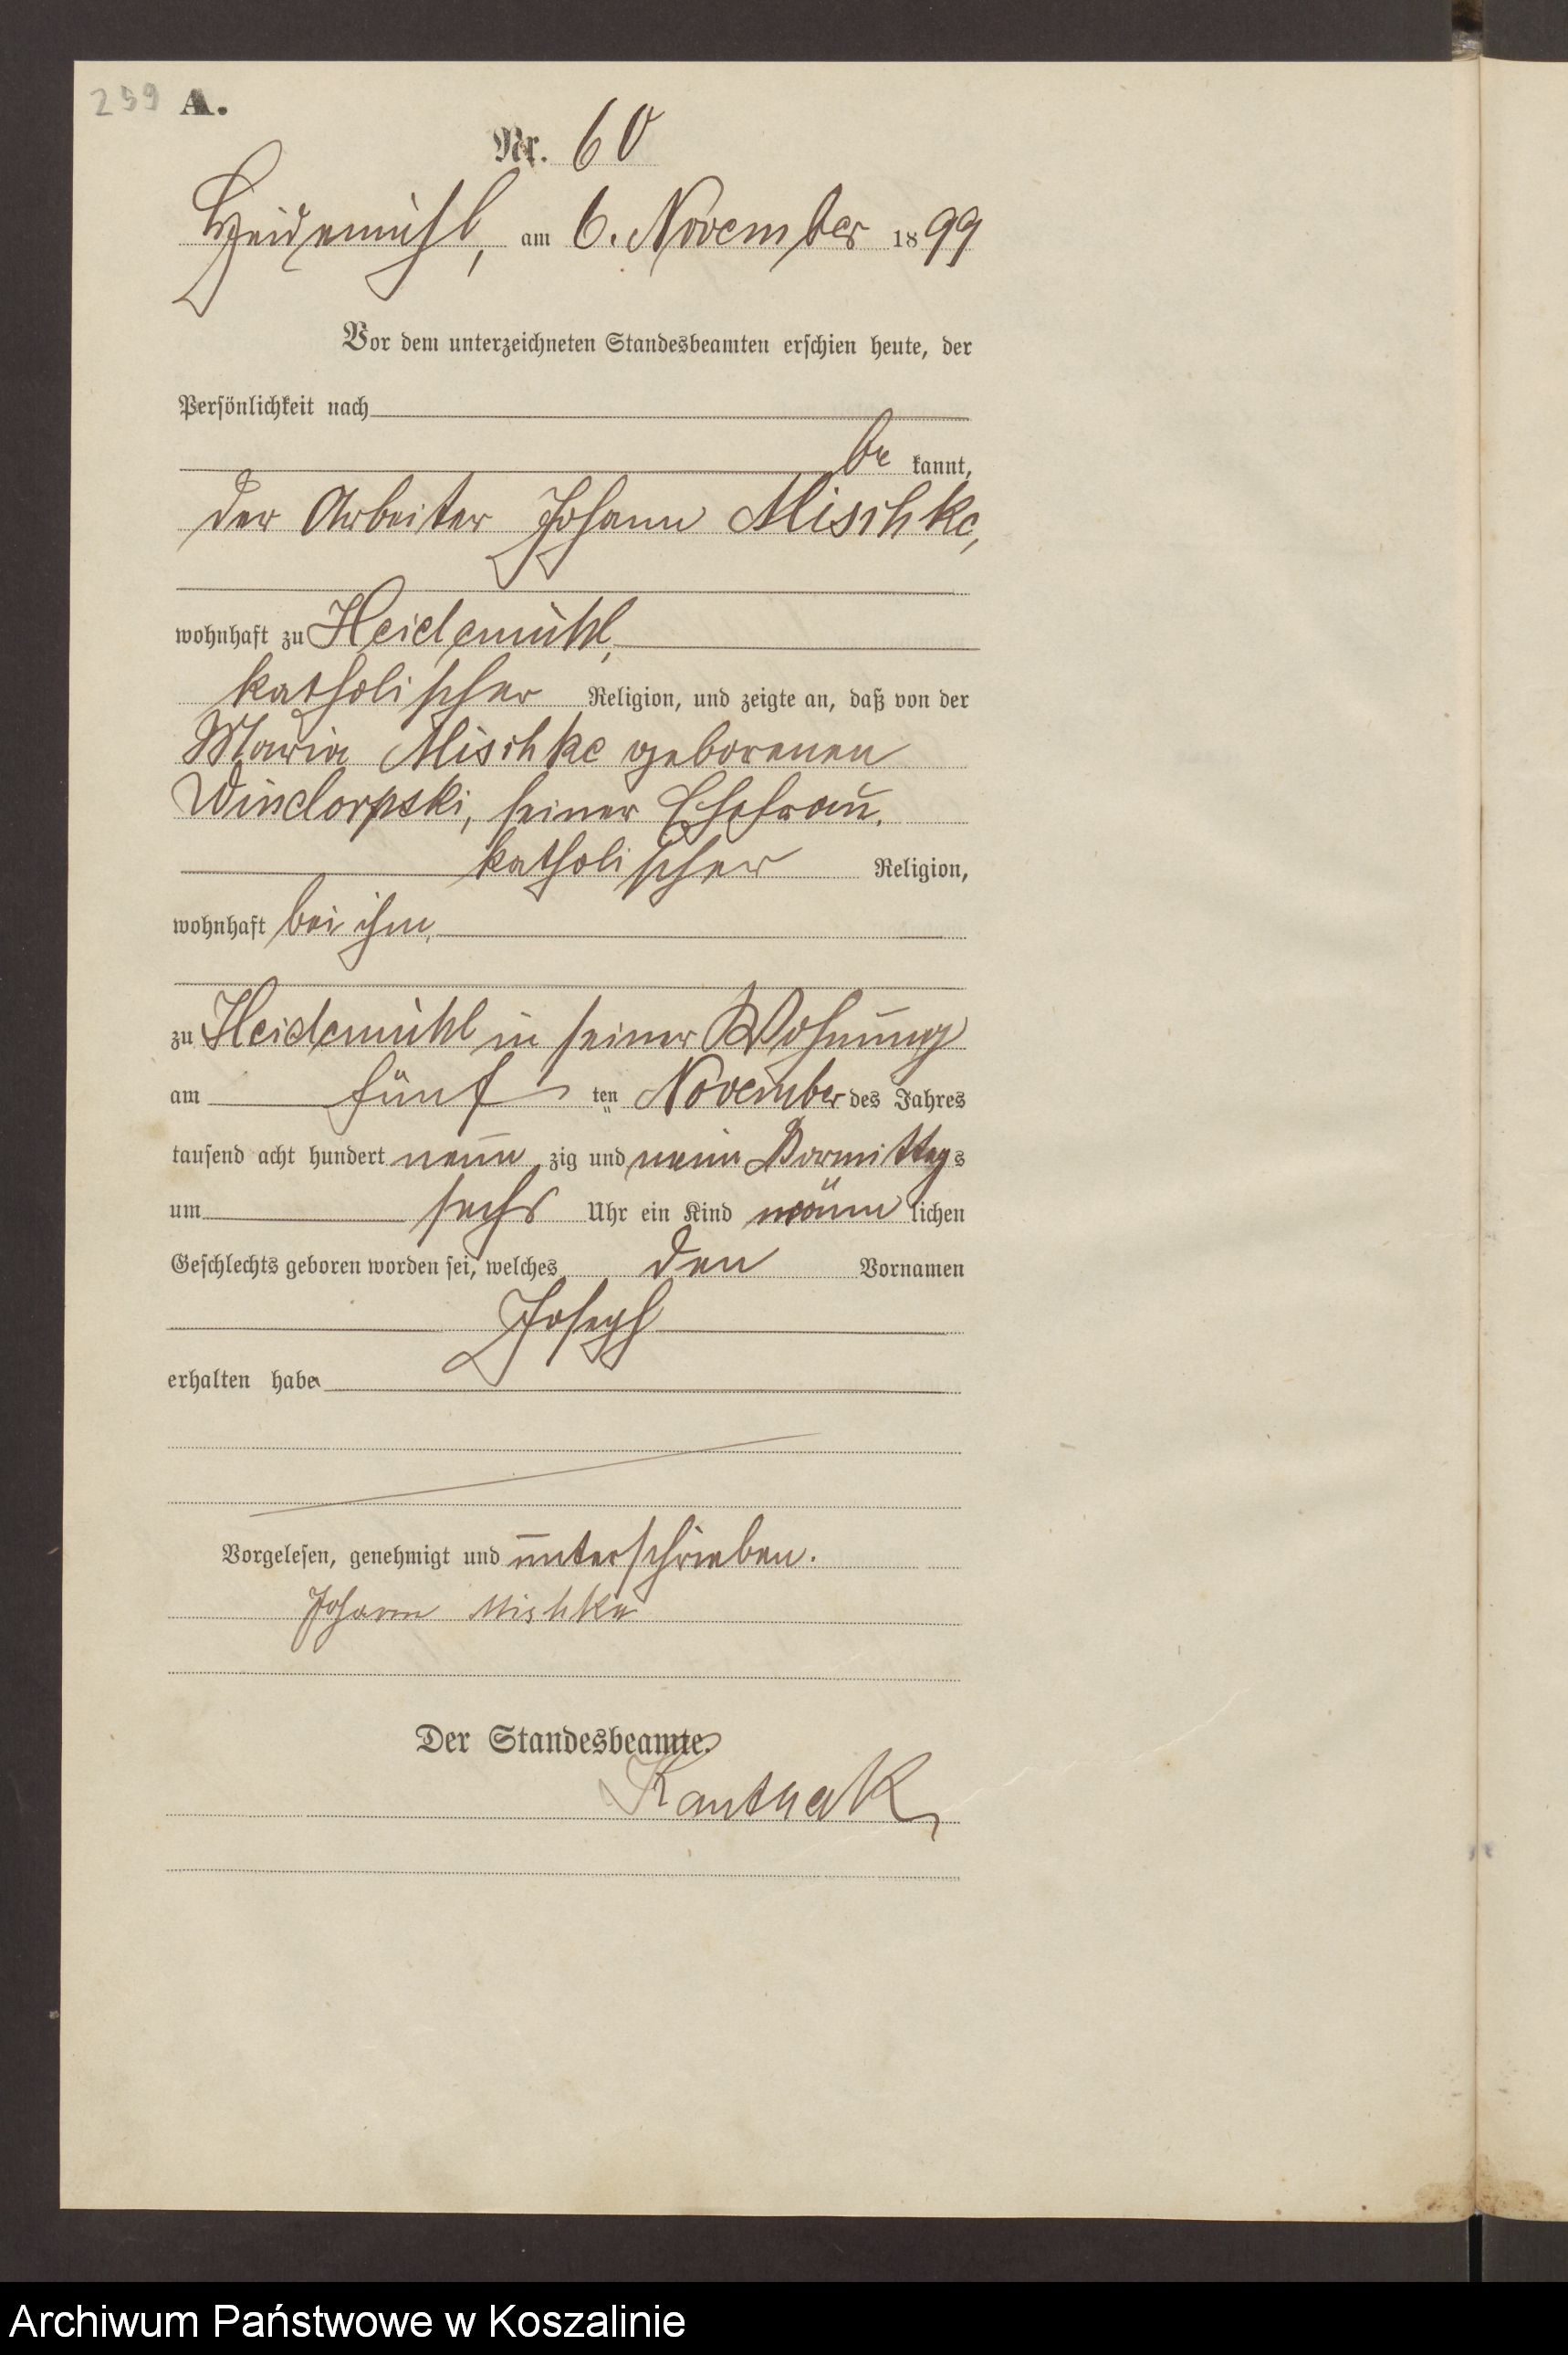 259 A.
Nr. 60
Heidemühl, am 6. November 1899
Vor dem unterzeichneten Standesbeamten erschien heute, der
Persönlichkeit nach
be kannt,
der Arbeiter Johann Mischke,
wohnhaft zu Heidemühl,
katholischer Religion, und zeigte an, daß von der
Maria Mischke geborenen
Windorpski, seiner Ehefrau,
katholischer Religion,
wohnhaft bei ihm,
zu Heidemühl in seiner Wohnung
am fünf ten November des Jahres
tausend acht hundert neun zig und neun Vormittags
um sechs Uhr ein Kind männ lichen
Geschlechts geboren worden sei, welches den Vornamen
Joseph
erhalten habe
Vorgelesen, genehmigt und unterschrieben.
Johann Mishke
Der Standesbeamte.
Kanthak
Archiwum Państwowe w Koszalinie